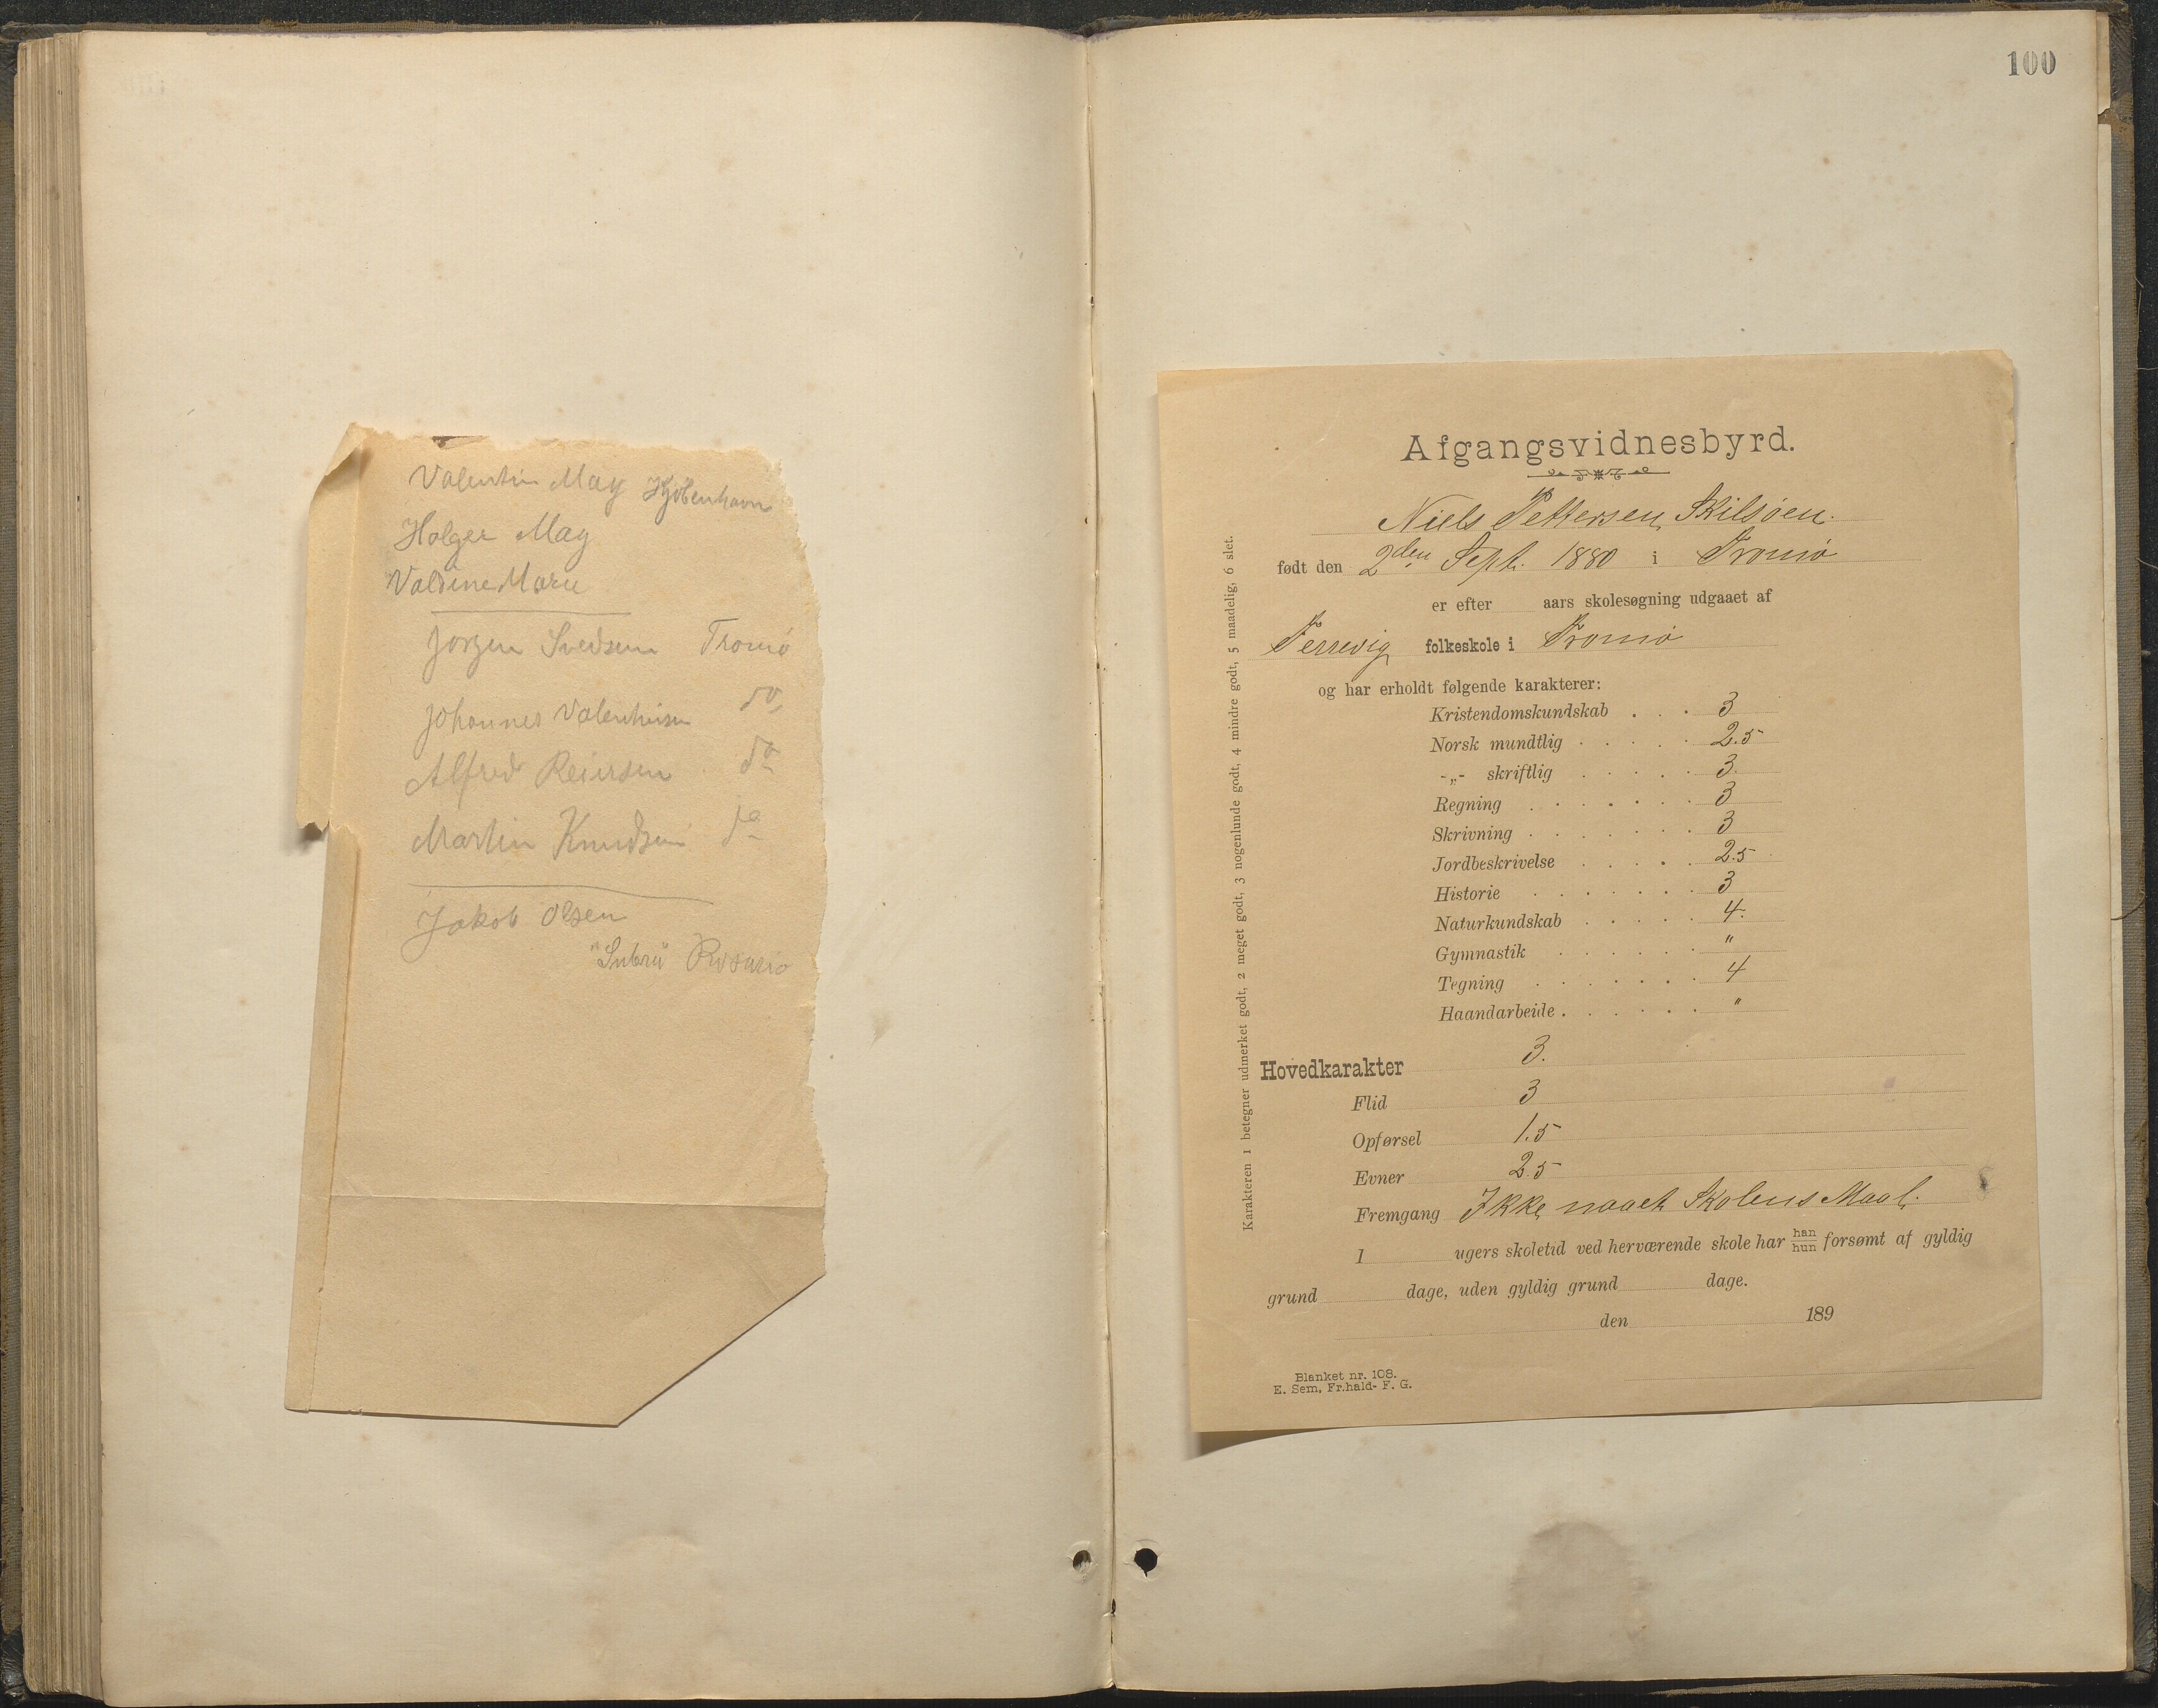 Valentin May Kjöbenhavn
Holger May
Valdine Marie
Jörgen Svedsen Tromö
Johannes Valentinsen do
Alfred Reiersen do
Martin Knudsen do
Jakob Olsen
Rosario
100
Afgangsvidnesbyrd.
Niels Pettersen, Skilsöen.
født den 2den Sept. 1880 i Tromö
er efter aars skolesøgning udgaaet af
Færrevig folkeskole i Tromö
og har erholdt følgende karakterer:
Kristendomskundskab . . . 3
Norsk mundtlig . . . . . 2.5
-„- skriftlig . . . . . 3.
Regning . . . . . . . 3
Skrivning . . . . . . . 3
Jordbeskrivelse . . . . . 2.5
Historie . . . . . . . 3
Naturkundskab . . . . . 4.
Gymnastik . . . . . . "
Tegning . . . . . . . 4
Haandarbeide . . . . . . "
Hovedkarakter 3.
Flid 3
Opførsel 1.5
Evner 2.5
Fremgang Ikke naaet Skolens Maal.
I ugers skoletid ved herværende skole har han/hun forsømt af gyldig
grund dage, uden gyldig grund dage.
den 189
Blanket nr. 108.
E. Sem, Fr.hald- F. G.
Karakteren 1 betegner udmerket godt, 2 meget godt, 3 nogenlunde godt, 4 mindre godt, 5 maadelig, 6 slet.